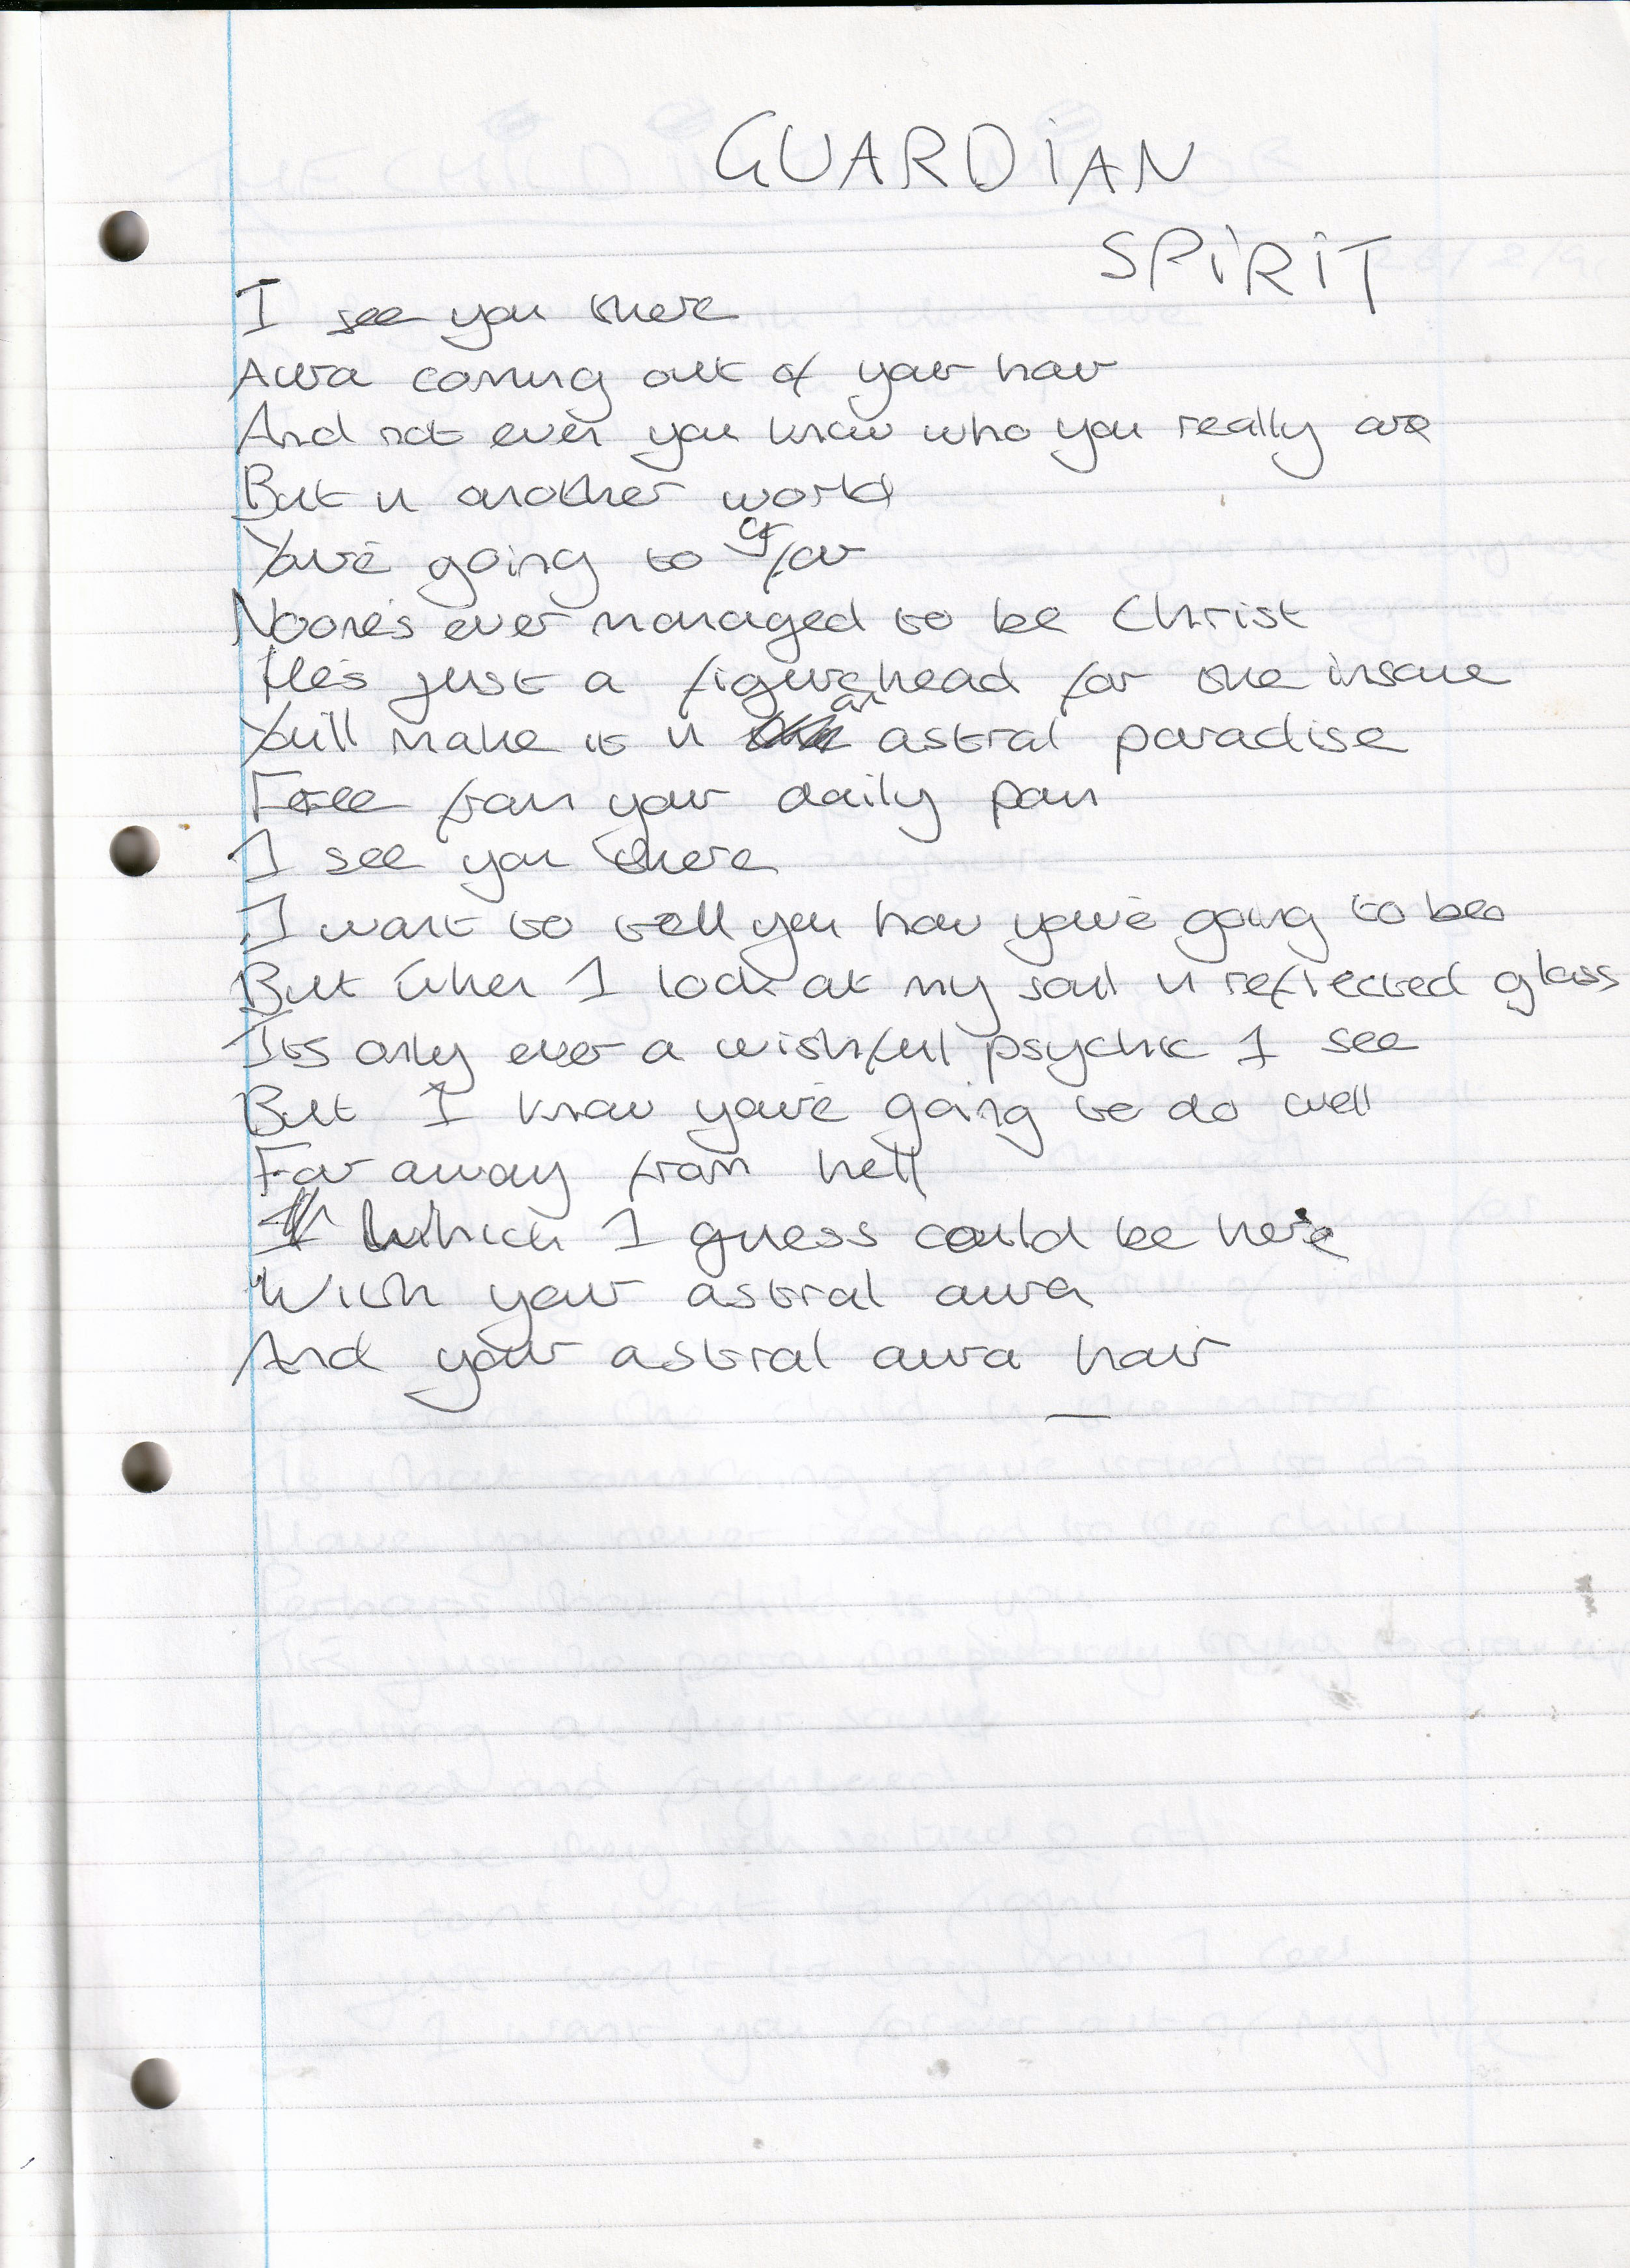 GUARDIAN
SPIRIT
I see you there
Aura coming out of your hair
And not even you know who you really are
But in another world
You're going to go far
Noone's ever managed to be Christ
He's just a figurehead for the insane
You'll make it in an astral paradise
Free from your daily pain
I see you there
I want to tell you how you're going to be
But when I look at my soul in reflected glass
Its only ever a wishful psychic I see
But I know you're going to do well
Far away from hell
Which I guess could be here
With your astral aura
And your astral aura hair